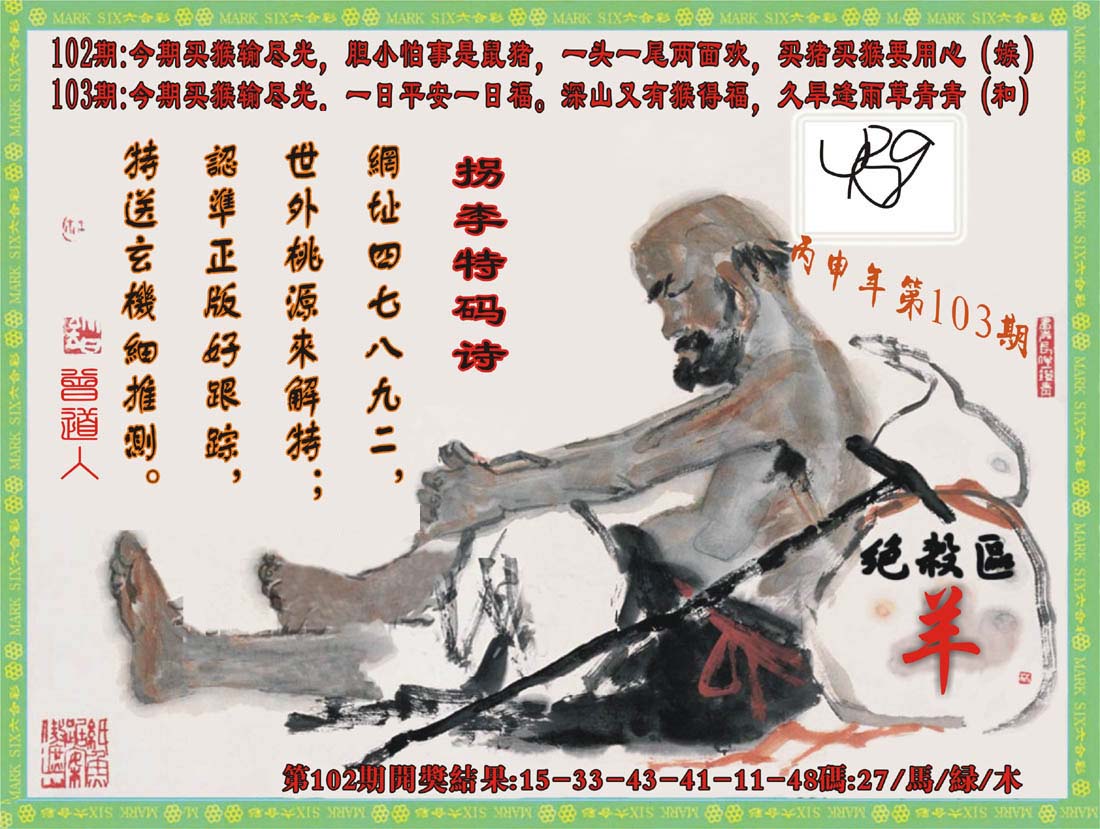 102期:今期买猴输尽光，胆小怕事是鼠猪，一头一尾两面欢，买猪买猴要用心（嫉）
103期:今期买猴输尽光．一日平安一日福。深山又有猴得福，久旱逢雨草青青（和）
拐李特码诗
網址四七八九二，
世外桃源來解特；
認準正版好跟踪，
特送玄機細推測。
曾道人
丙申年第103期
绝殺區
羊
第102期開獎結果:15-33-43-41-11-48碼:27/馬/緑/木
MARK SIX六合彩